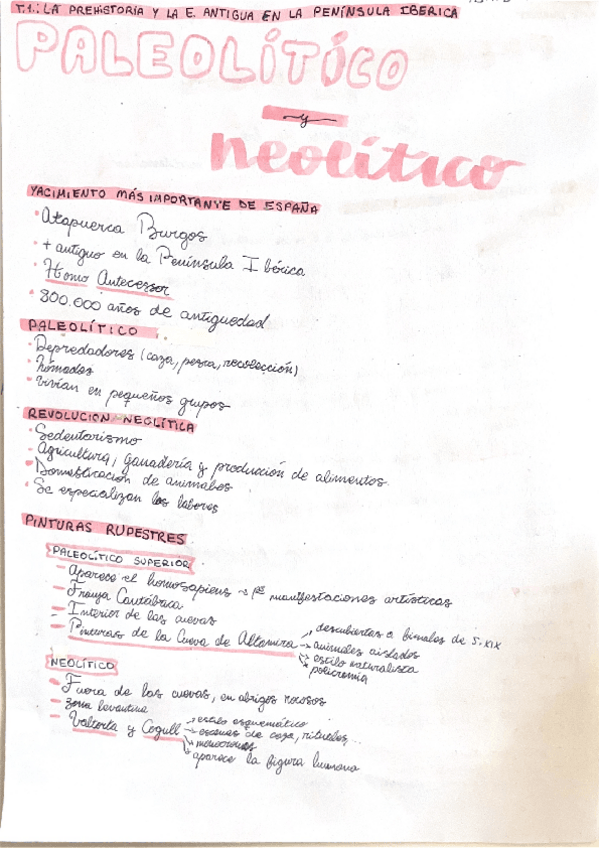 T.1.: LA PREHISTORIA Y LA E. ANTIGUA EN LA PENÍNSULA IBERICA
PALEOLÍTICO
y
neolítico
YACIMIENTO MÁS IMPORTANTE DE ESPAÑA
• Atapuerca Burgos
• + antiguo en la Península Ibérica
• Homo Antecessor
• 800.000 años de antiguedad
PALEOLÍTICO
• Depredadores (caza, pesca, recolección)
• Nómadas
• Vivían en pequeños grupos
REVOLUCION NEOLÍTICA
• Sedentarismo
• Agricultura, ganadería y producción de alimentos
• Domesticación de animales
• Se especializan las labores
PINTURAS RUPESTRES
PALEOLÍTICO SUPERIOR
- Aparece el homosapiens → manifestaciones artísticas
- Franja Cantábrica
- Interior de las cuevas
- Pinturas de la Cueva de Altamira → descubiertas a finales de S. XIX
→ animales aislados
→ estilo naturalista
→ policromía
NEOLÍTICO
- Fuera de las cuevas, en abrigos rocosos
- zona levantina
- Valtorta y Cogull → estilo esquemático
→ escenas de caza, rituales...
→ monocromas
→ aparece la figura humana